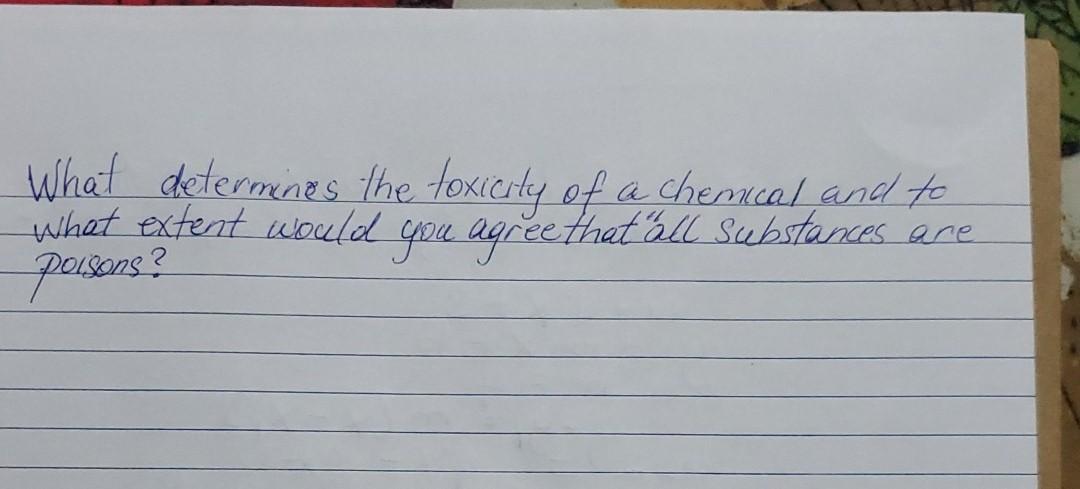 What determines the toxicity of a chemical and to
what extent would you agree that "all substances are
poisons?